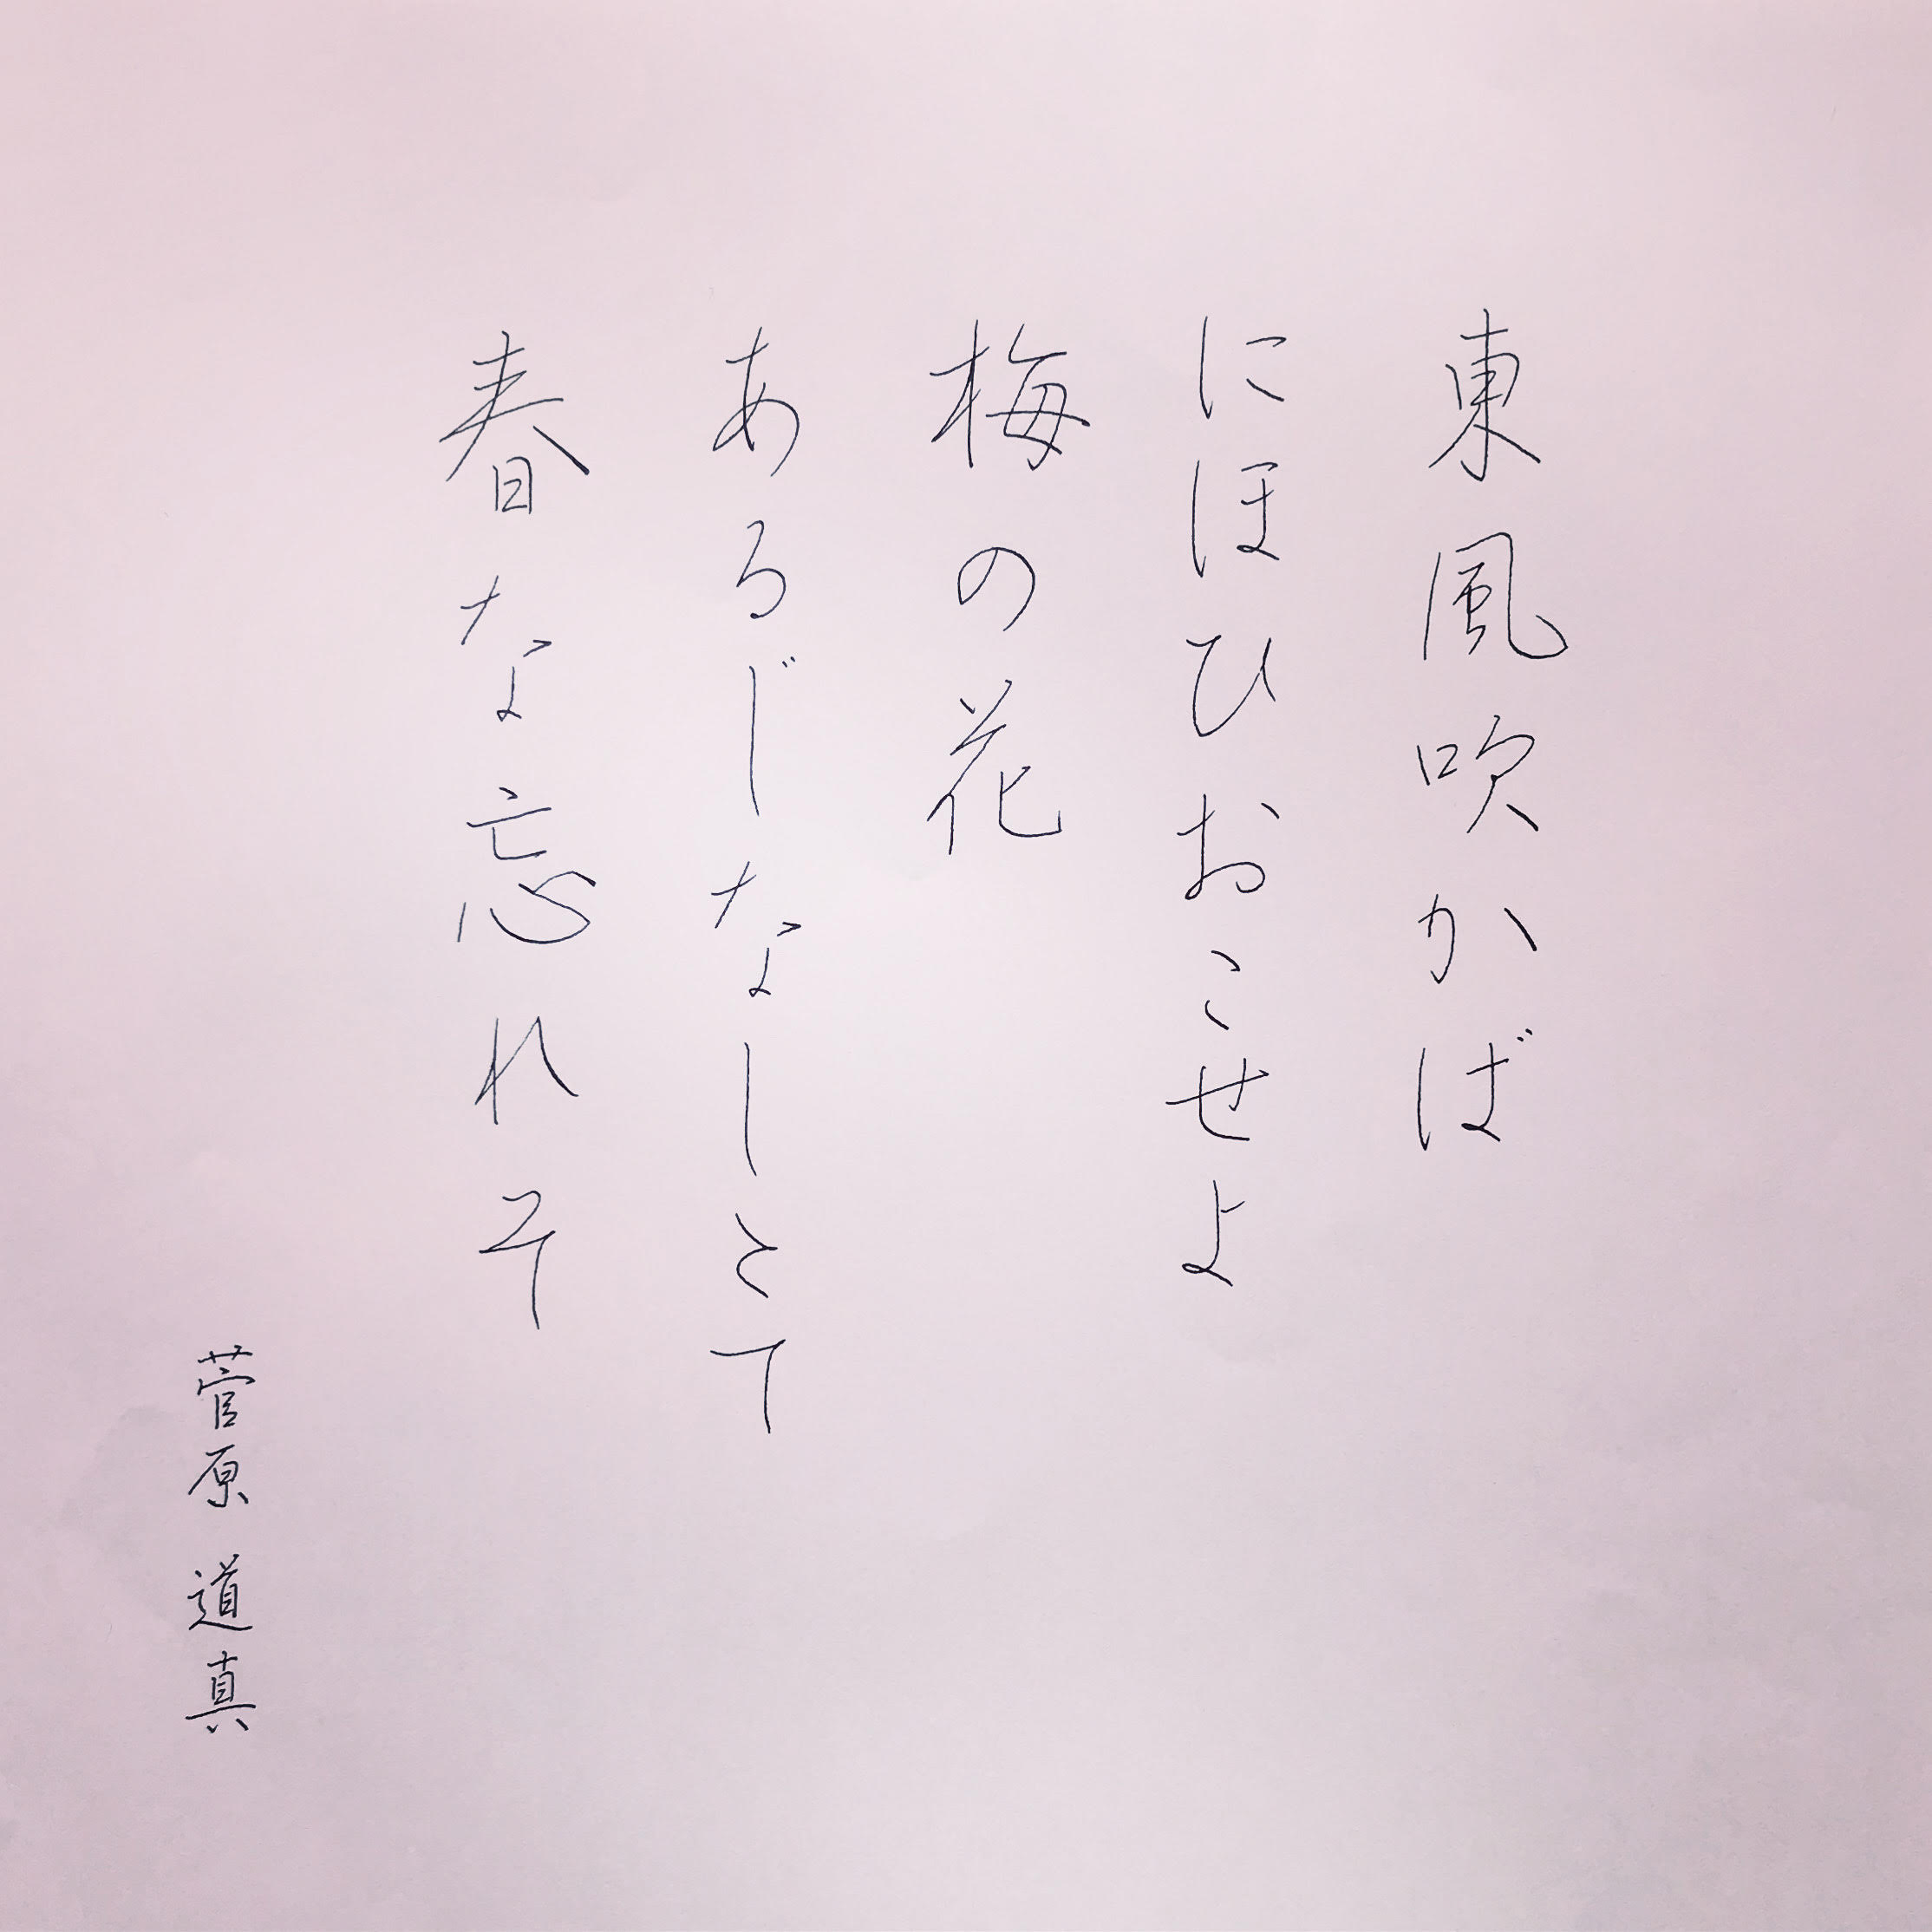 東風吹かば
にほひおこせよ
梅の花
あるじなしとて
春な忘れそ
菅原 道真